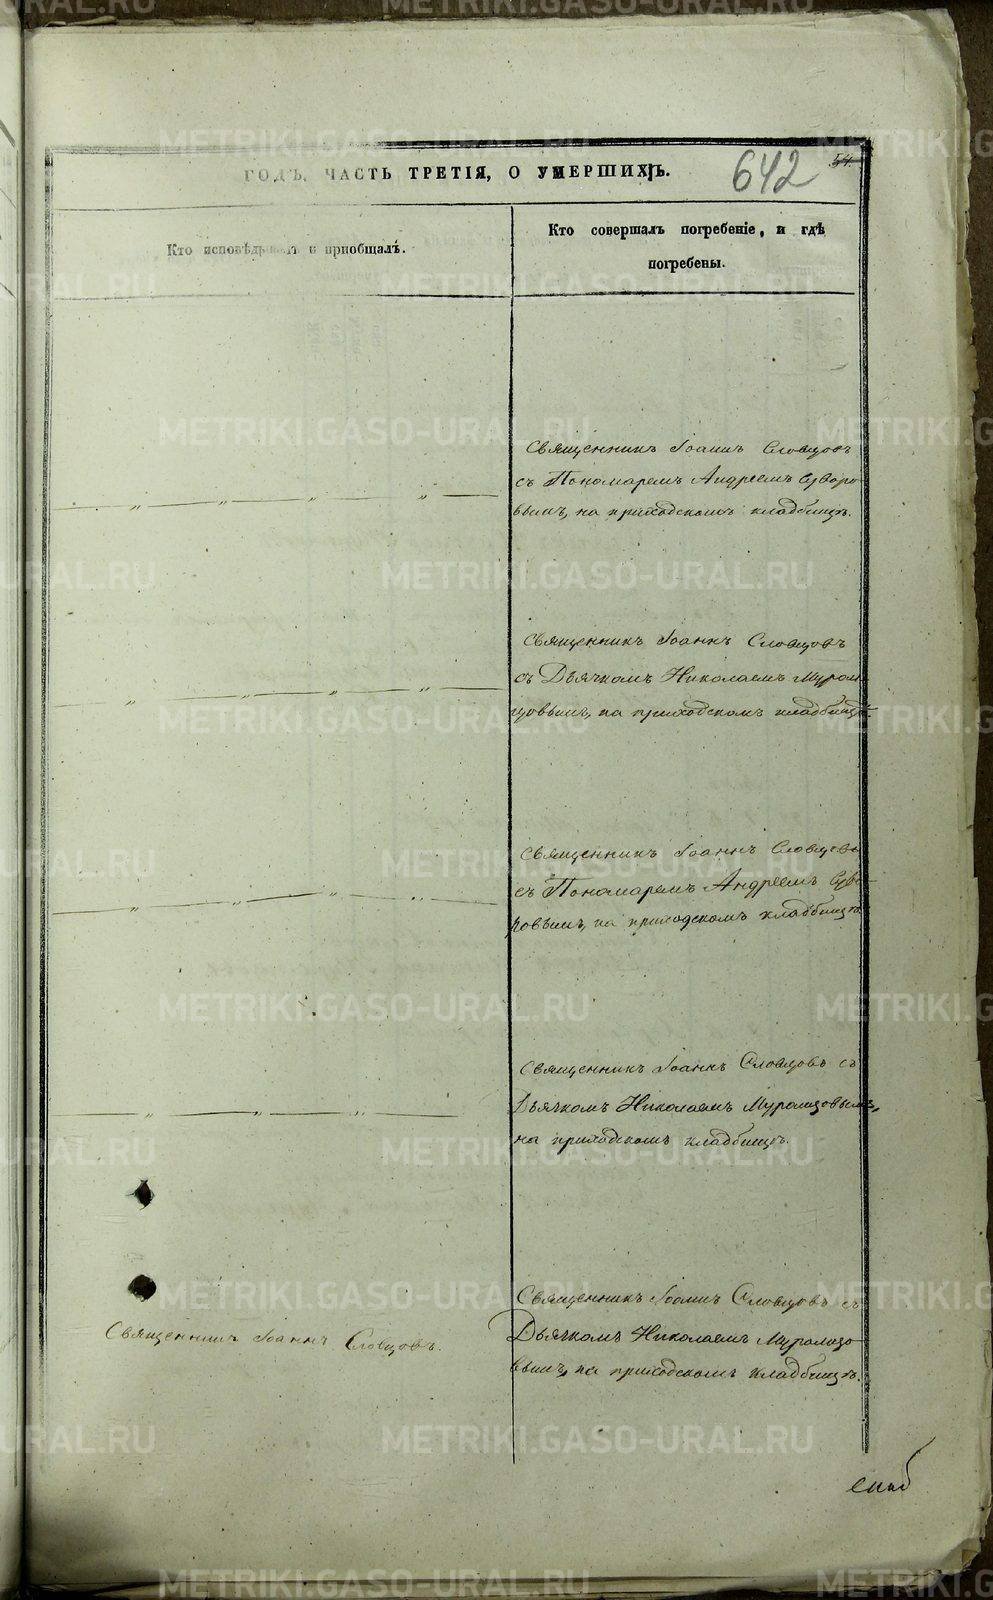 ГОДЪ, ЧАСТЬ ТРЕТІЯ, О УМЕРШИХЪ.
642
54.
Кто исповѣдывалъ и пріобщалъ.
Кто совершалъ погребеніе, и гдѣ
погребены.
Священникъ Іоаннъ Словцовъ
съ Пономаремъ Андреемъ Суворо
вымъ, на приходскомъ кладбищѣ.
Священникъ Іоаннъ Словцовъ
съ Дьячкомъ Николаемъ Муром
цовымъ, на приходскомъ кладбищѣ.
Священникъ Іоаннъ Словцовъ
съ Пономаремъ Андреемъ Суво
ровымъ, на приходскомъ кладбищѣ.
Священникъ Іоаннъ Словцовъ съ
Дьячкомъ Николаемъ Муромцовымъ,
на приходскомъ кладбищѣ.
Священникъ Іоаннъ Словцовъ.
Священникъ Іоаннъ Словцовъ съ
Дьячкомъ Николаемъ Муромцо
вымъ, на приходскомъ кладбищѣ.
METRIKI.GASO-URAL.RU